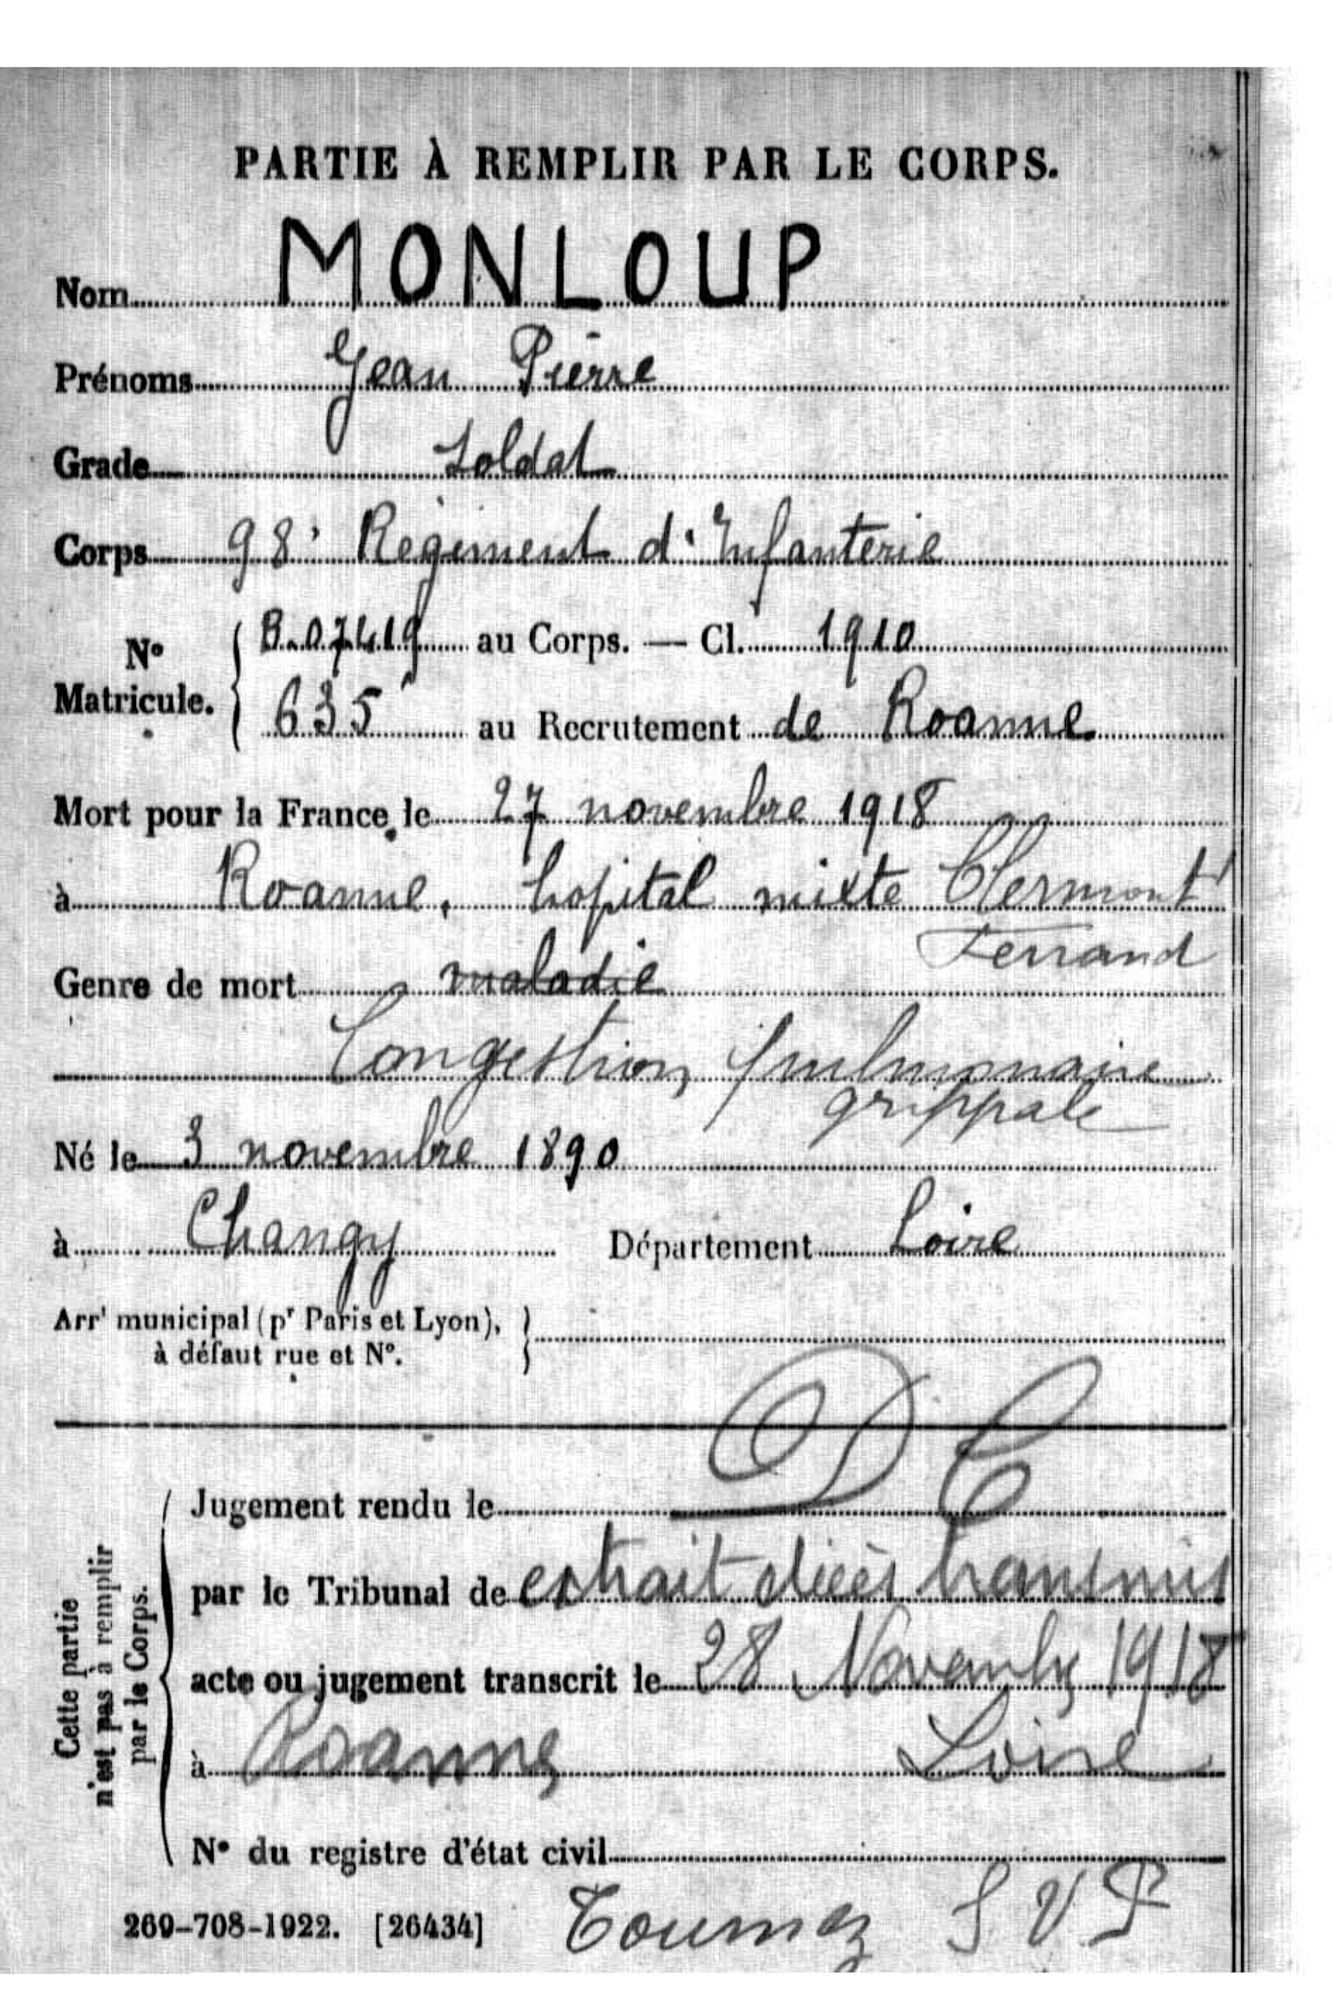 PARTIE À REMPLIR PAR LE CORPS.
Nom MONLOUP
Prénoms Jean Pierre
Grade Soldat
Corps 98e Régiment d'Infanterie
No Matricule. B.07419 au Corps. — Cl. 1910
635 au Recrutement de Roanne
Mort pour la France le 27 novembre 1918
à Roanne, hopital mixte Clermont
Ferrand
Genre de mort maladie
Congestion pulmonaire
grippale
Né le 3 novembre 1890
à Changy Département Loire
Arrt municipal (pr Paris et Lyon),
à défaut rue et No.
D C
Jugement rendu le
par le Tribunal de extrait décès transmis
acte ou jugement transcrit le 28 Novembre 1918
à Roanne Loire
No du registre d'état civil
Cette partie
n'est pas à remplir
par le Corps.
269-708-1922. [26434] Tournez S V P